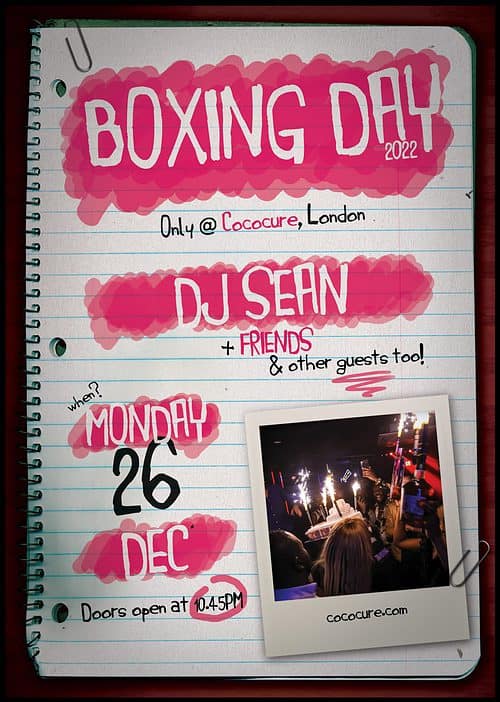 BOXING DAY
2022
Only @ Cococure, London
DJ SEAN
+ FRIENDS
& other guests too!
when?
MONDAY
26
DEC
Doors open at 10.45PM
cococure.com